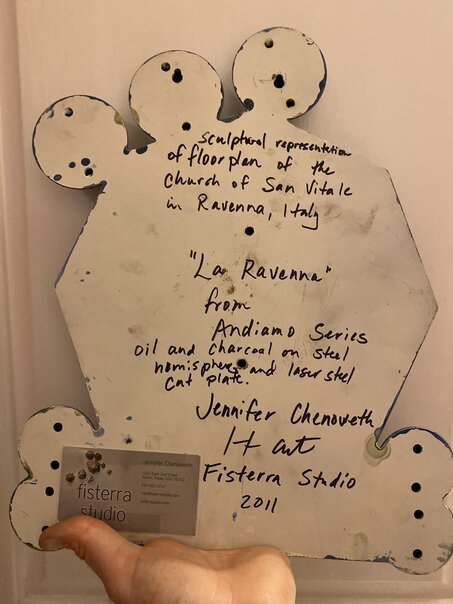 sculptural representation
of floorplan of the
Church of San Vitale
in Ravenna, Italy
"La Ravenna"
from
Andiamo Series
oil and charcoal on steel
hemispheres and laser steel
cut plate.
Jennifer Chenoweth
Fisterra Studio
2011
Jennifer Chenoweth
fisterra
studio